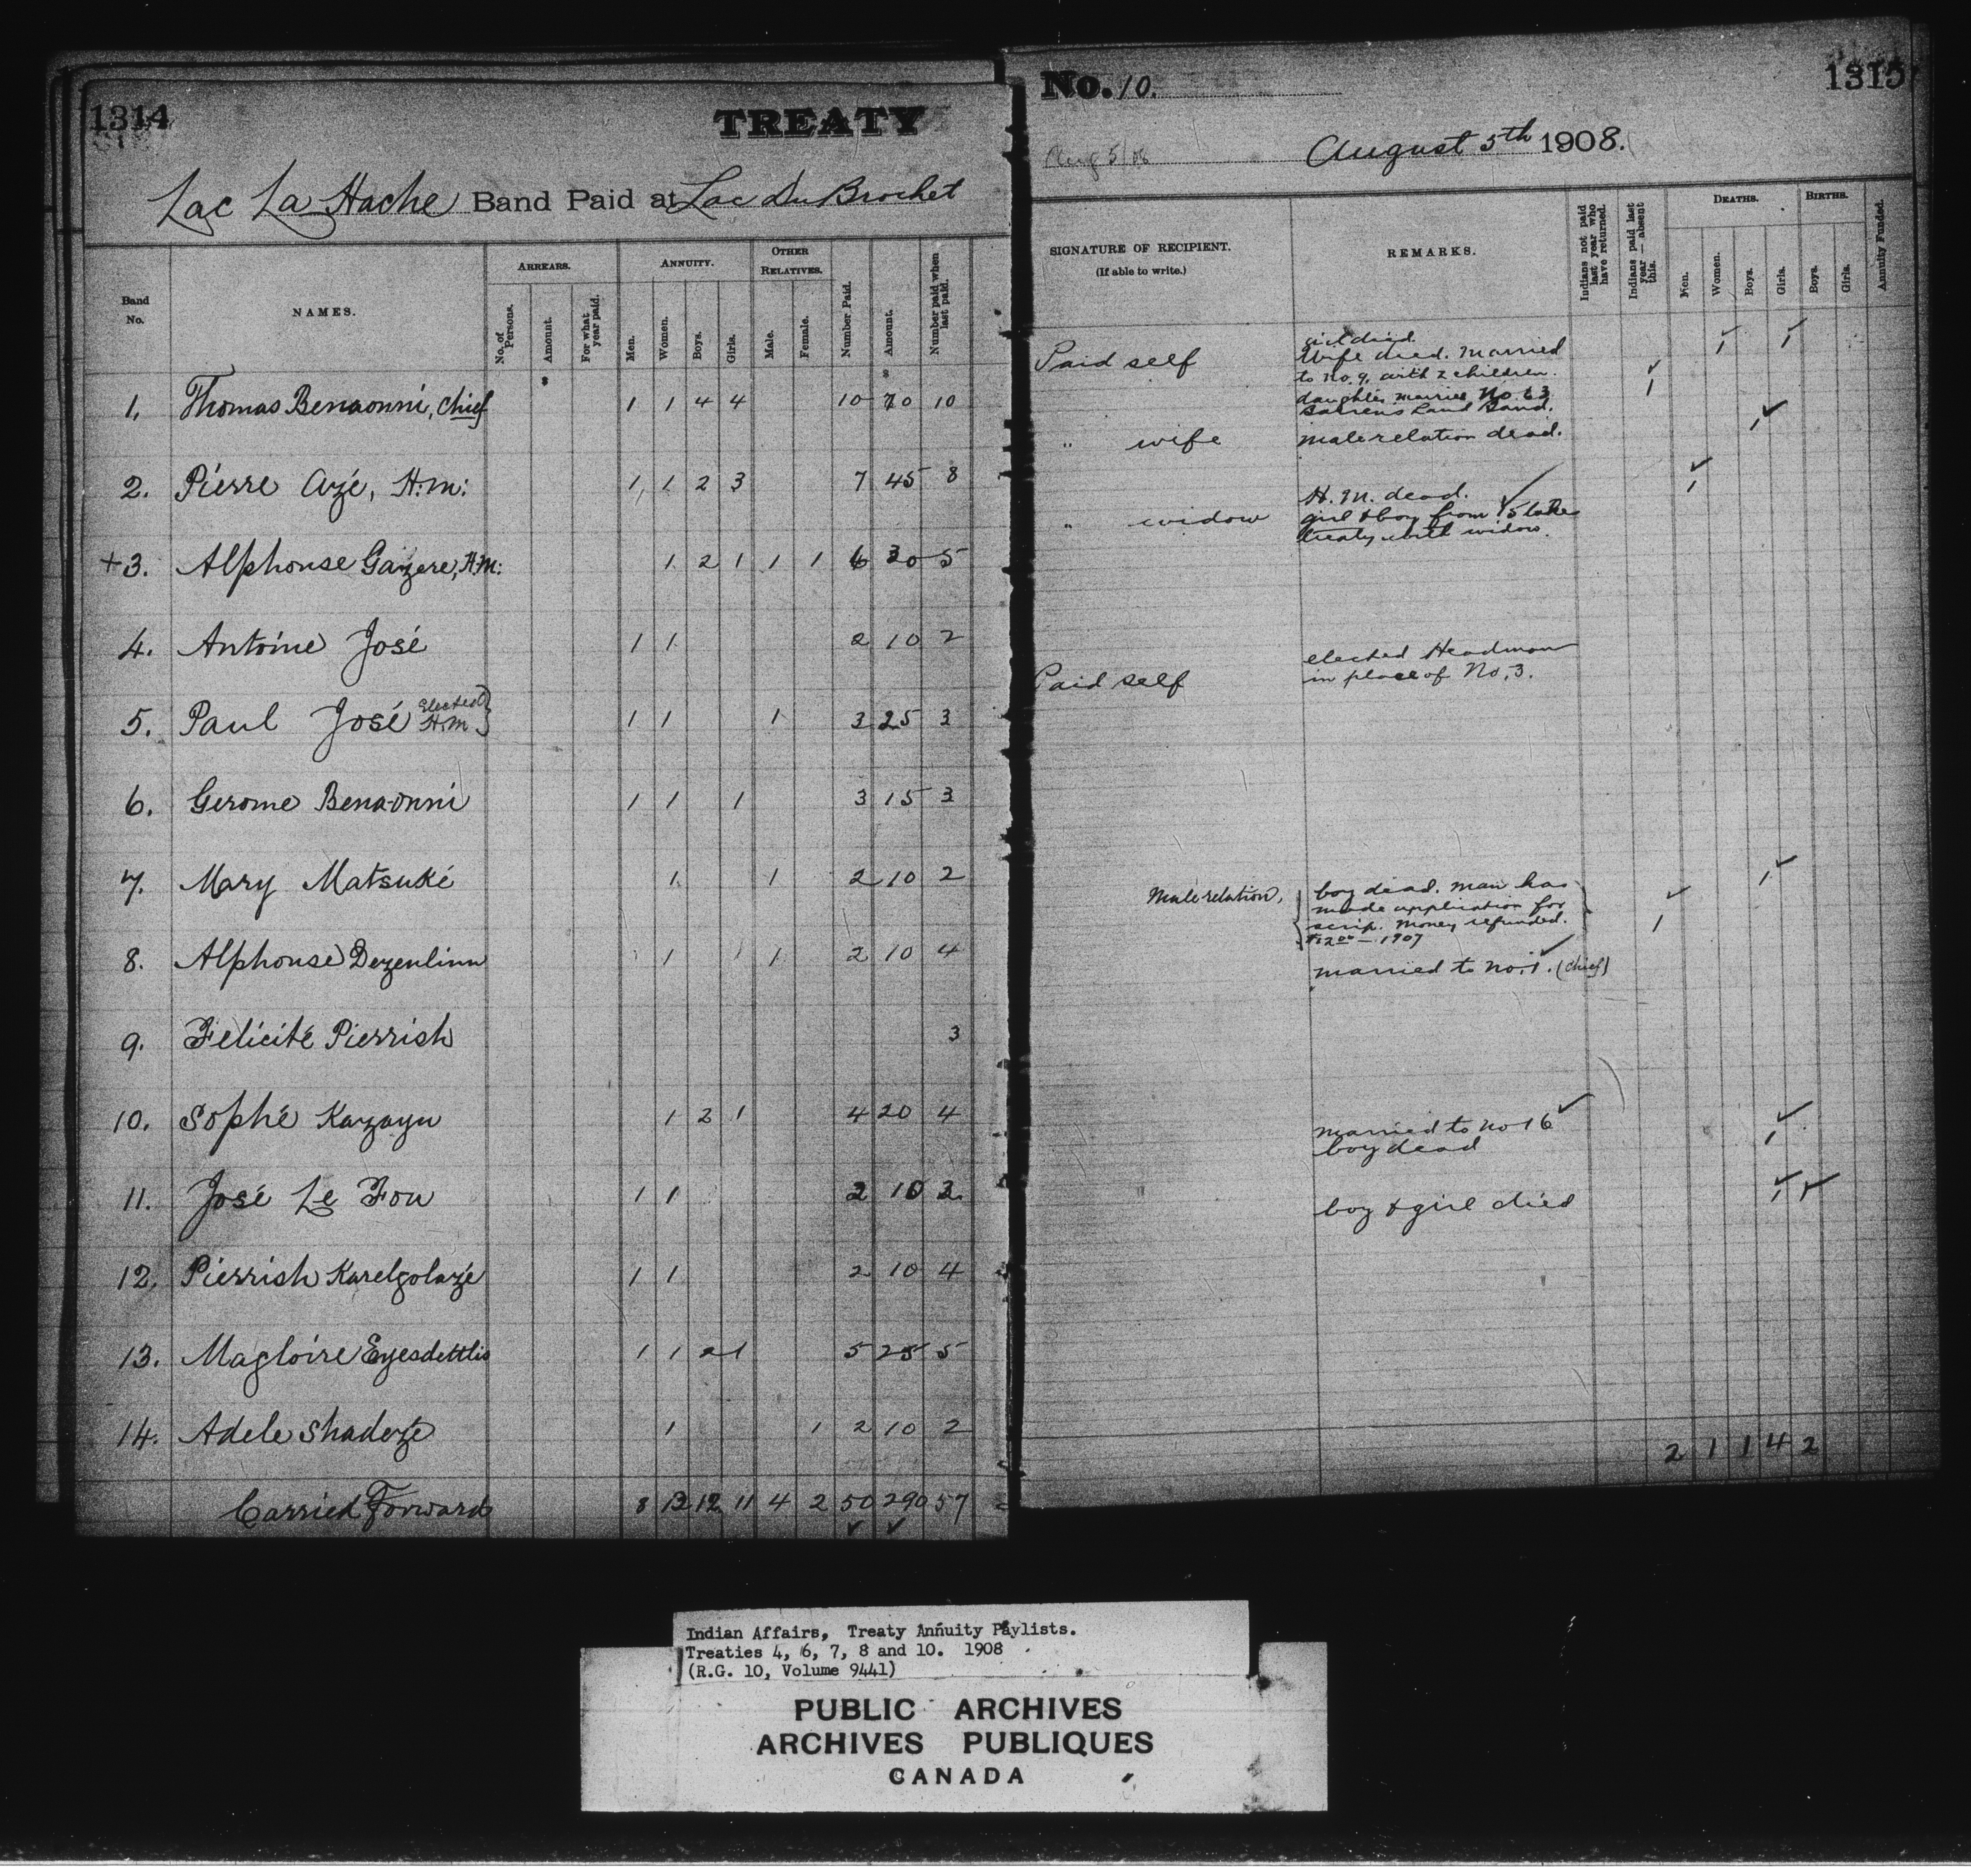 1314
TREATY
Lac La Hache Band Paid at Lac Du Brochet
Band No.
NAMES.
ARREARS.
No. of Persons.
Amount.
For what year paid.
ANNUITY.
Men.
Women.
Boys.
Girls.
OTHER RELATIVES.
Male.
Female.
Number Paid.
Amount.
Number paid when last paid.
1. Thomas Benaonni, Chief 1 1 4 4 10 70 10
2. Pierre Azé, H.M: 1 1 2 3 7 45 8
+3. Alphonse Gazere, H.M: 1 2 1 1 1 6 30 5
4. Antoine José 1 1 2 10 2
5. Paul José Elected H.M. 1 1 1 3 25 3
6. Gerome Benaonni 1 1 1 3 15 3
7. Mary Matsuké 1 1 2 10 2
8. Alphonse Dezenlinn 1 1 2 10 4
9. Felicité Pierrish 3
10. Sophé Kazayu 1 2 1 4 20 4
11. José Le Fou 1 1 2 10 3
12. Pierrish Karelgolazé 1 1 2 10 4
13. Magloire Eyesdettlis 1 1 2 1 5 25 5
14. Adele Shadeze 1 1 2 10 2
Carried Forward 8 13 12 11 4 2 50 290 57
No. 10.
1315
Aug 5/08
August 5th 1908.
SIGNATURE OF RECIPIENT.
(If able to write.)
REMARKS.
Indians not paid last year who have returned.
Indians paid last year — absent this.
DEATHS.
Men.
Women.
Boys.
Girls.
BIRTHS.
Boys.
Girls.
Annuity Funded.
girl died.
Paid self Wife died. Married
to No. 9, with 2 children.
daughter married No. 63
Barrens Land Band.
" wife male relation dead.
H.M. dead.
" widow girl & boy from 15 take
treaty with widow.
elected Headman
Paid self in place of No. 3.
Male relation, boy dead. man has
made application for
scrip. Money refunded.
$12.00 — 1907
married to No. 1. (Chief)
married to No 16
boy dead
boy & girl died
2 1 1 4 2
Indian Affairs, Treaty Annuity Paylists.
Treaties 4, 6, 7, 8 and 10. 1908
(R.G. 10, Volume 9441)
PUBLIC ARCHIVES
ARCHIVES PUBLIQUES
CANADA